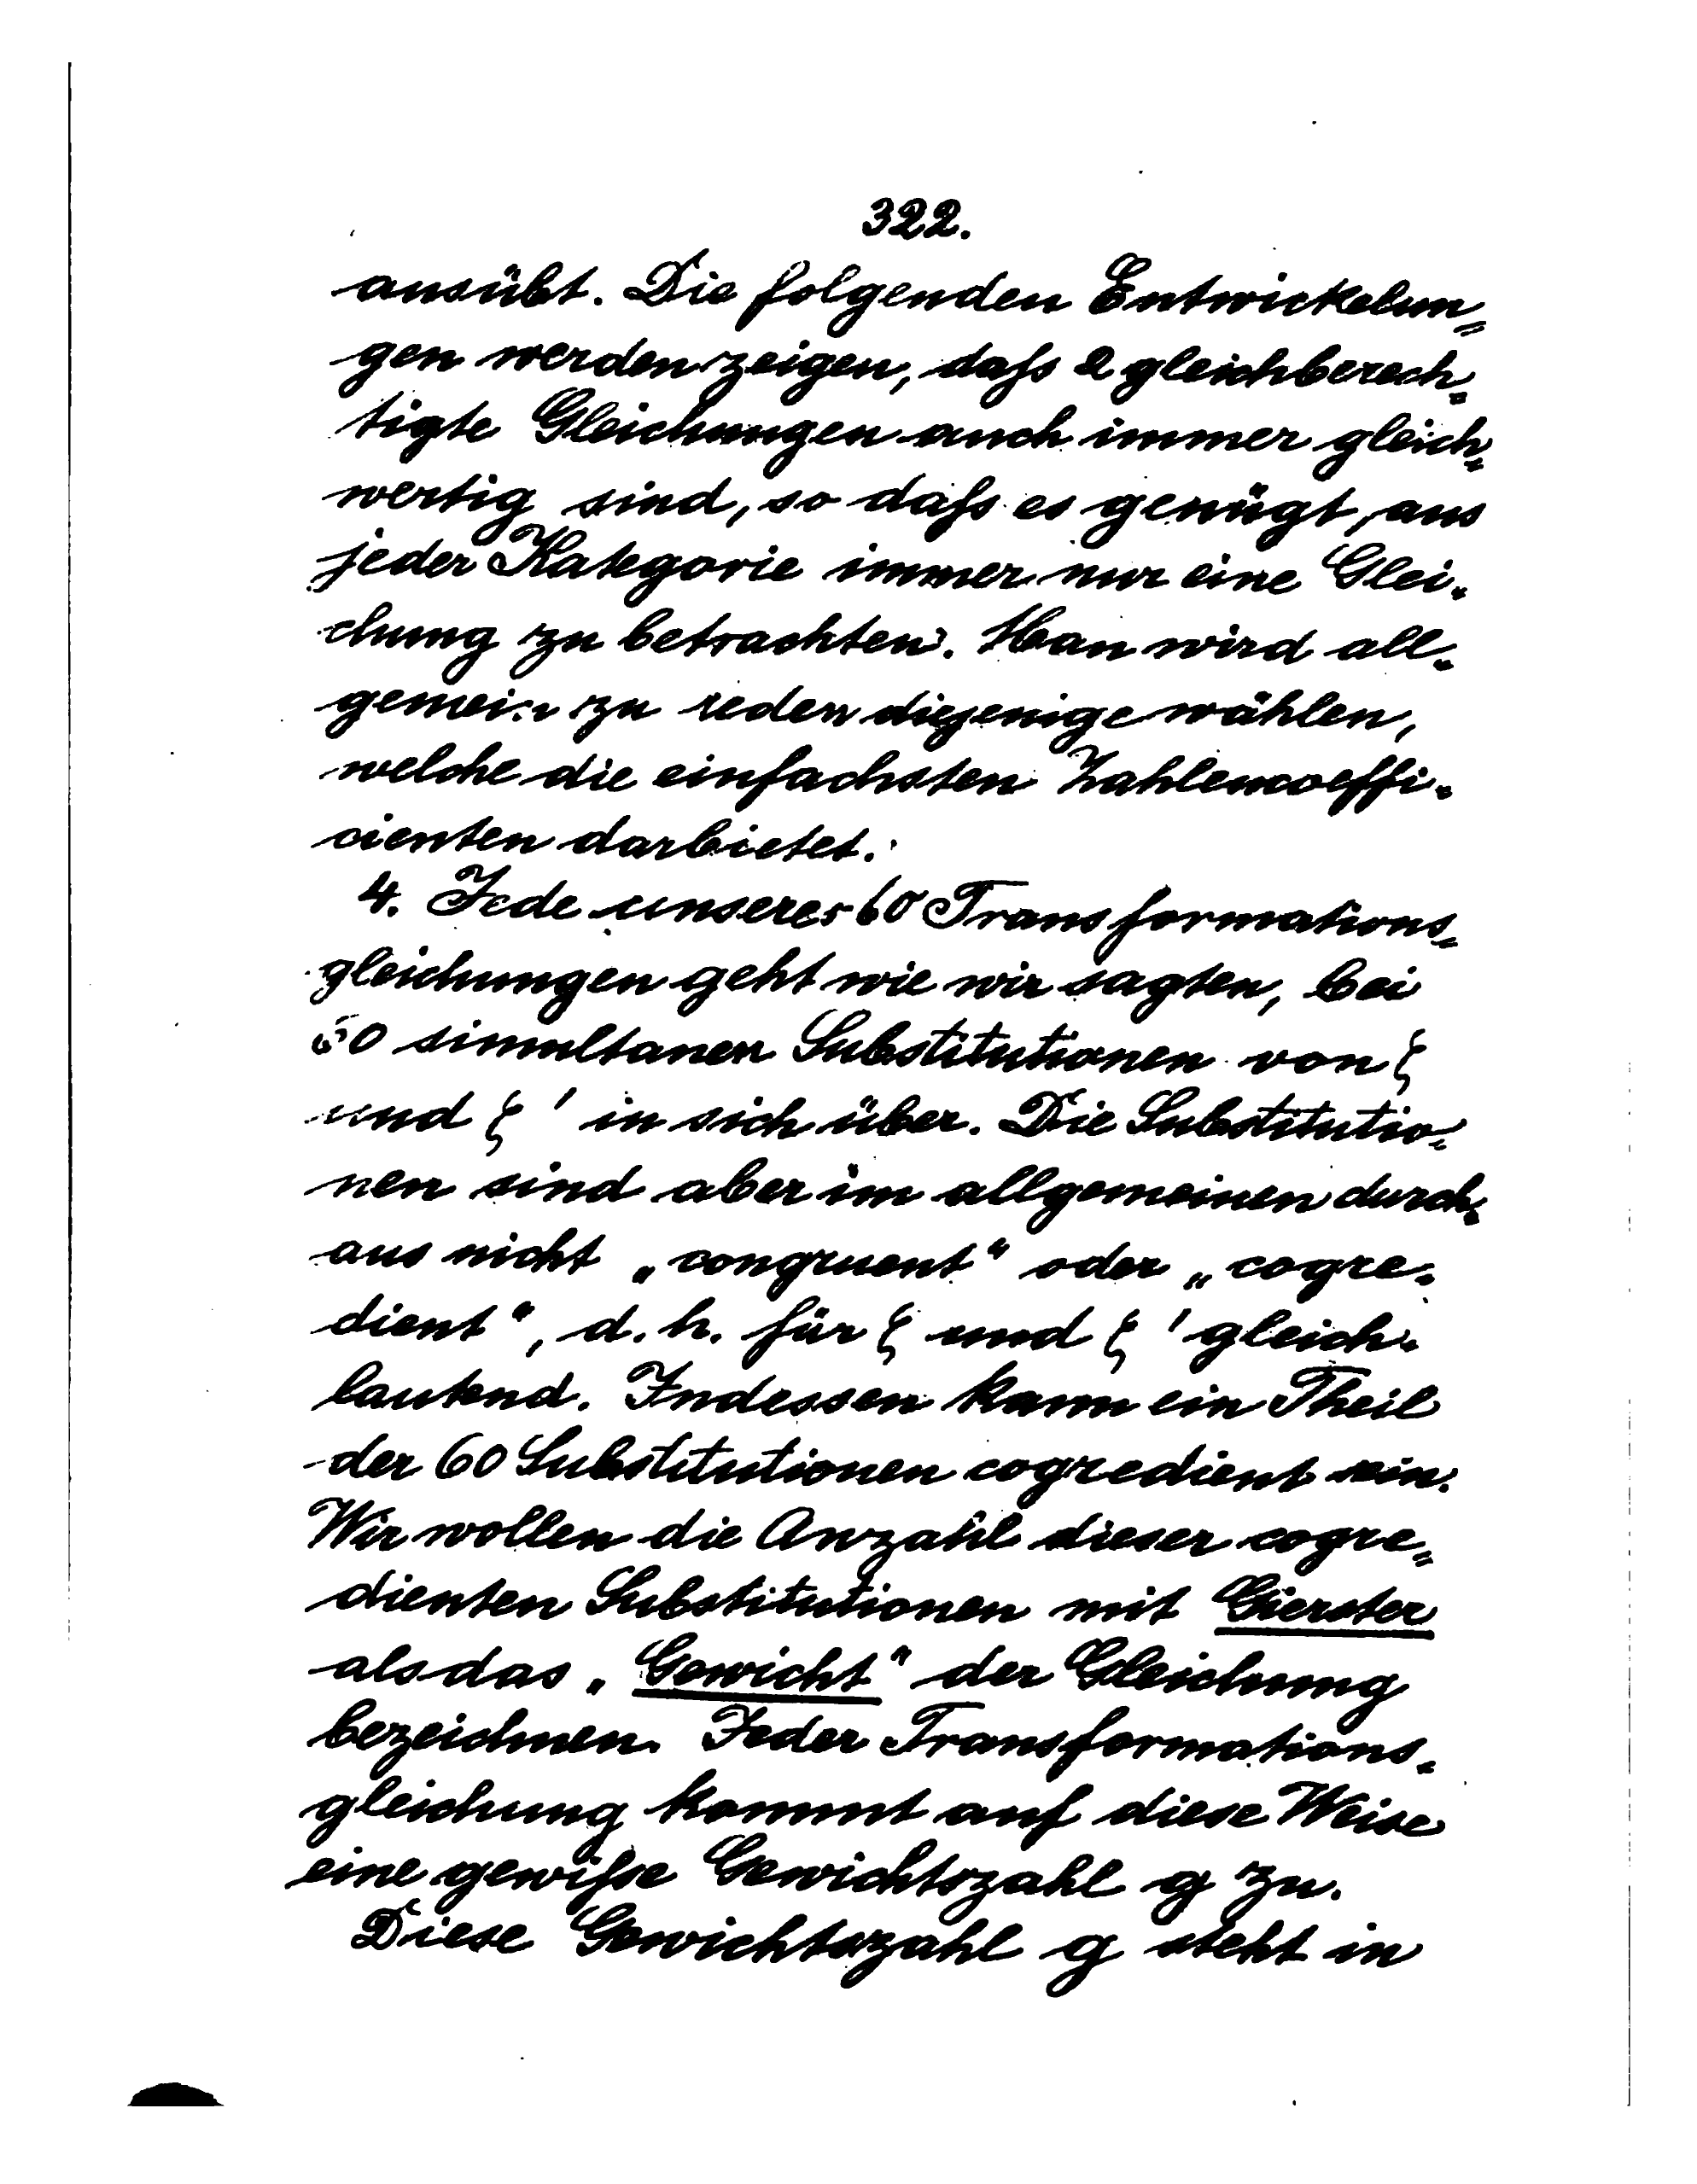 322.
ausübt. Die folgenden Entwickelun-
gen werden zeigen, daſs 2 gleichberech-
tigte Gleichungen auch immer gleich-
wertig sind, so daſs es genügt, aus
jeder Kategorie immer nur eine Glei-
chung zu betrachten. Man wird all-
gemein zu reden diejenige wählen,
welche die einfachsten Zahlencoeffi-
cienten darbietet.
4. Jede unserer 60 Transformations-
gleichungen geht wie wir sagten, bei
60 simultanen Substitutionen von ξ
und ξ' in sich über. Die Substitutio-
nen sind aber im allgemeinen durch-
aus nicht „congruent" oder „cogre-
dient", d. h. für ξ und ξ' gleich-
lautend. Indessen kann ein Theil
der 60 Substitutionen cogredient sein.
Wir wollen die Anzahl dieser cogre-
dienten Substitutionen mit Gierster
als das „Gewicht" der Gleichung
bezeichnen. Jeder Transformations-
gleichung kommt auf diese Weise
eine gewiſse Gewichtszahl g zu.
Diese Gewichtszahl g steht in